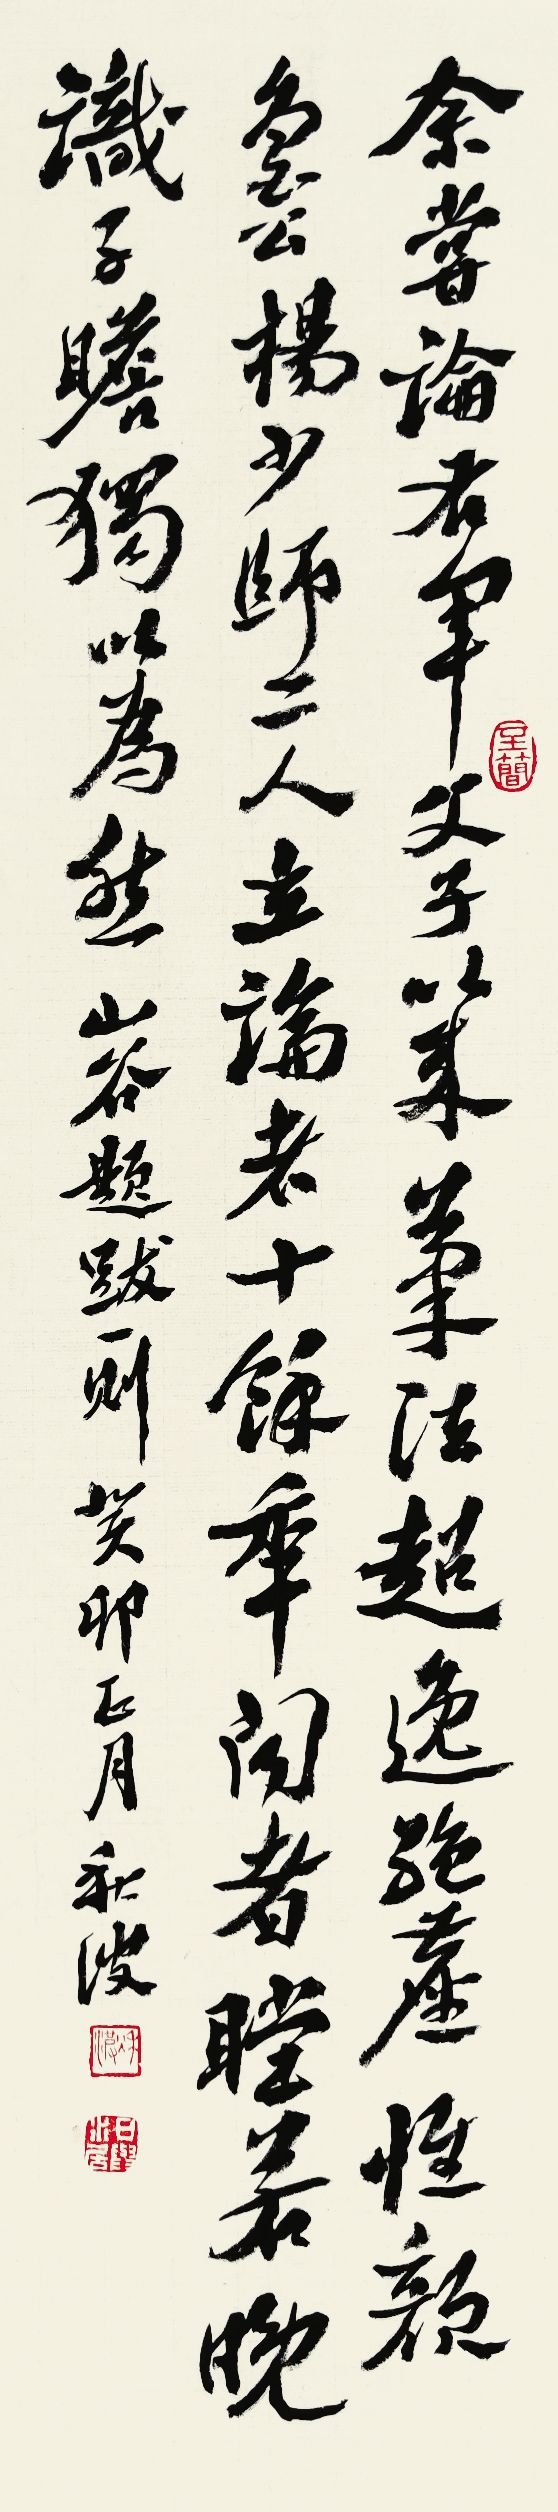 余嘗論右軍父子以來筆法超逸絕塵惟顏
魯公楊少師二人立論者十餘年聞者瞠若晚
識子瞻獨以為然 山谷題跋一則 癸卯正月秋波
至簡